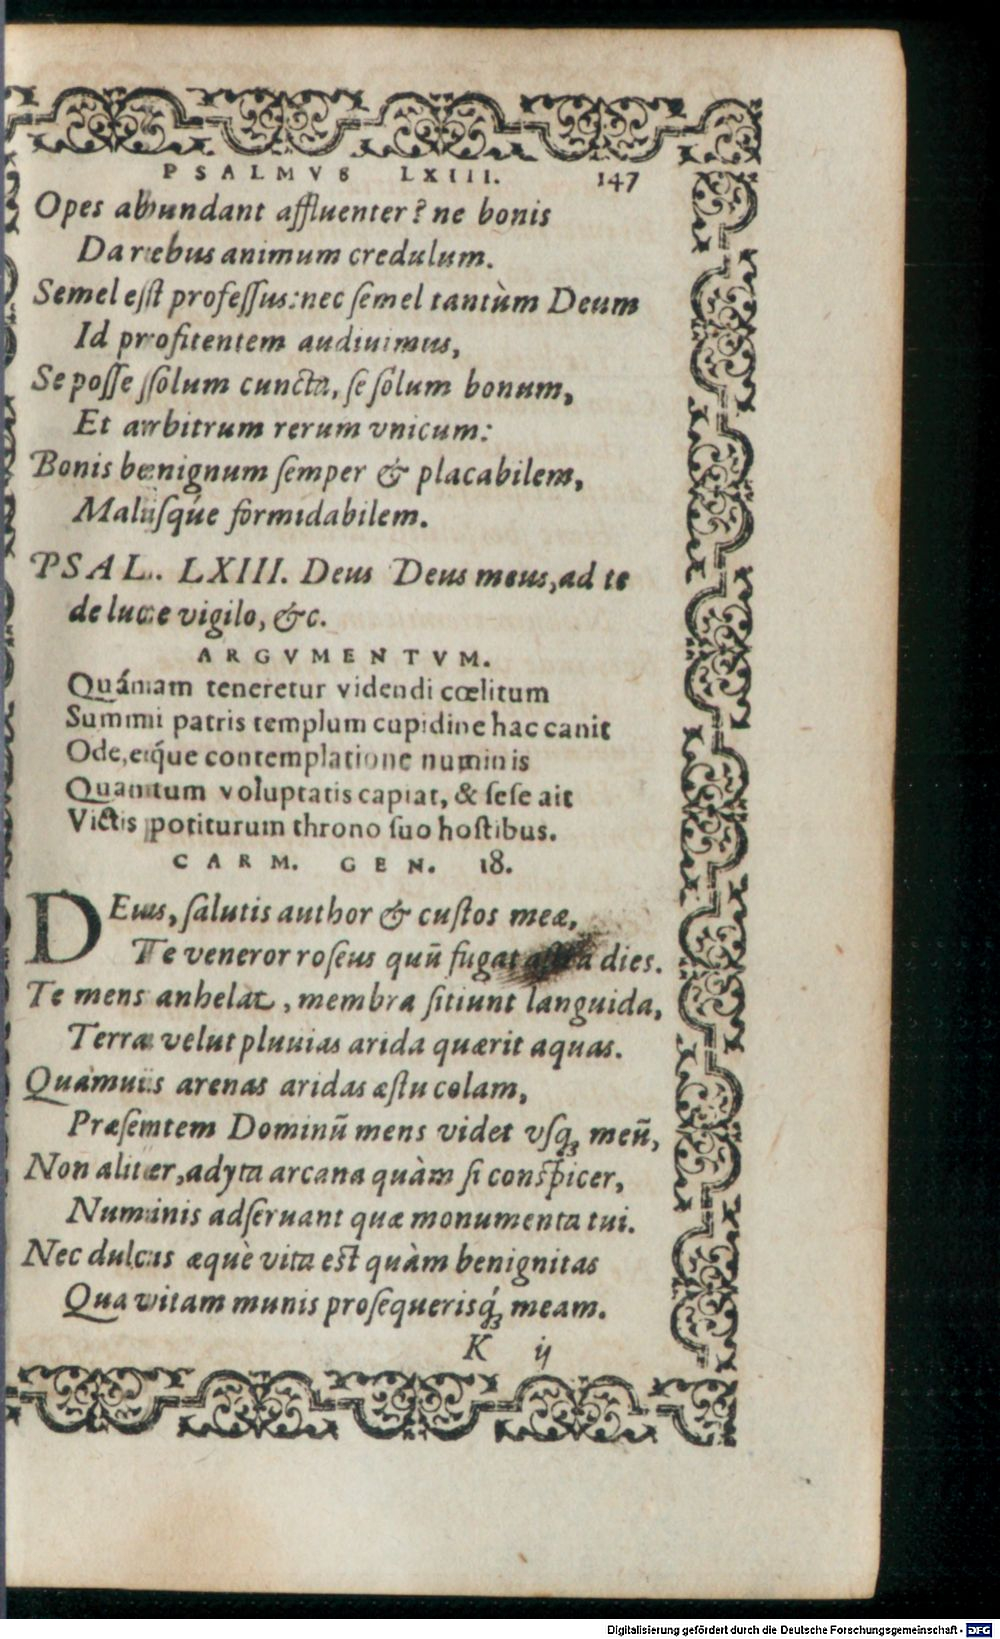 PSALMVS LXIII. 147
Opes abundant affluenter? ne bonis
Da rebus animum credulum.
Semel est professus: nec semel tantùm Deum
Id profitentem audiuimus,
Se posse solum cuncta, se solum bonum,
Et arbitrum rerum vnicum:
Bonis benignum semper & placabilem,
Malisqúe formidabilem.
PSAL. LXIII. Deus Deus meus, ad te
de luce vigilo, &c.
ARGVMENTVM.
Quánam teneretur videndi cœlitum
Summi patris templum cupidine hac canit
Ode, eiq́ue contemplatione numinis
Quantum voluptatis capiat, & sese ait
Victis potiturum throno suo hostibus.
CARM. GEN. 18.
DEus, salutis author & custos meæ,
Te veneror roseus quū fugat astra dies.
Te mens anhelat, membra sitiunt languida,
Terra velut pluuias arida quærit aquas.
Quamuis arenas aridas æstu colam,
Præsentem Dominū mens videt vsq; meū,
Non aliter, adyta arcana quàm si conspicer,
Numinis adseruant quæ monumenta tui.
Nec dulcis æquè vita est quàm benignitas
Qua vitam munis prosequerisq́; meam.
K ij
Digitalisierung gefördert durch die Deutsche Forschungsgemeinschaft - DFG